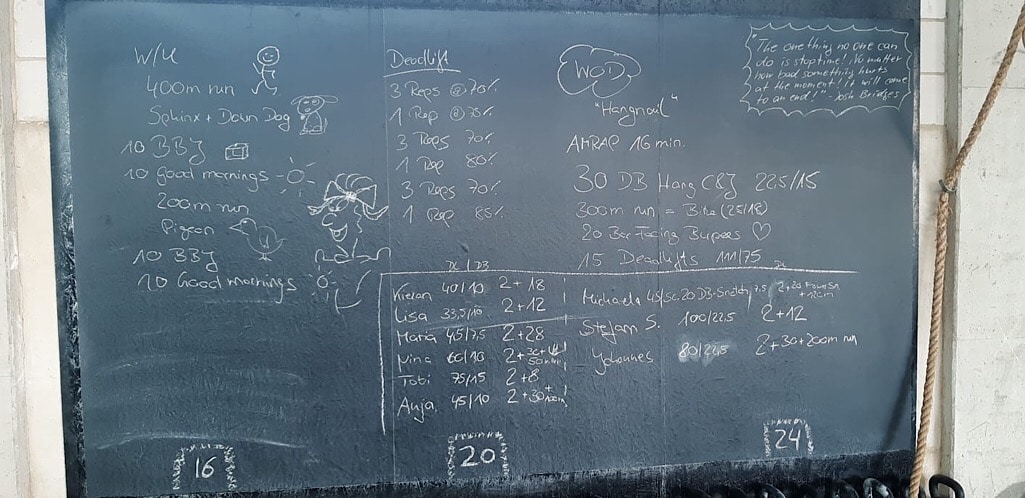 W/U
400m run
Sphinx + Down Dog
10 BBJ
10 good mornings
200m run
Pigeon
10 BBJ
10 Good mornings
Deadlift
3 Reps @ 70%
1 Rep @ 75%
3 Reps 70%
1 Rep 80%
3 Reps 70%
1 Rep 85%
WOD
"Hangnail"
AMRAP 16 min.
30 DB Hang C&J 22,5/15
300m run = Bike (25/18)
20 Bar Facing Burpees ♡
15 Deadlifts 111/75
"The one thing no one can
do is stop time! No matter
how bad something hurts
at the moment! It will come
to an end!" - Josh Bridges
DL / DB
Kieran 40/10 2+18
Lisa 33,5/10 2+12
Maria 45/7,5 2+28
Nina 60/10 2+30+
Tobi 75/15 2+8
Anja 45/10 2+30+
DL
Michaela 45/Sc. 20 DB-Snatch 7,5 2+20
Stefan S. 100/22,5 2+12
Johannes 80/22,5 2+30+200m run
16
20
24